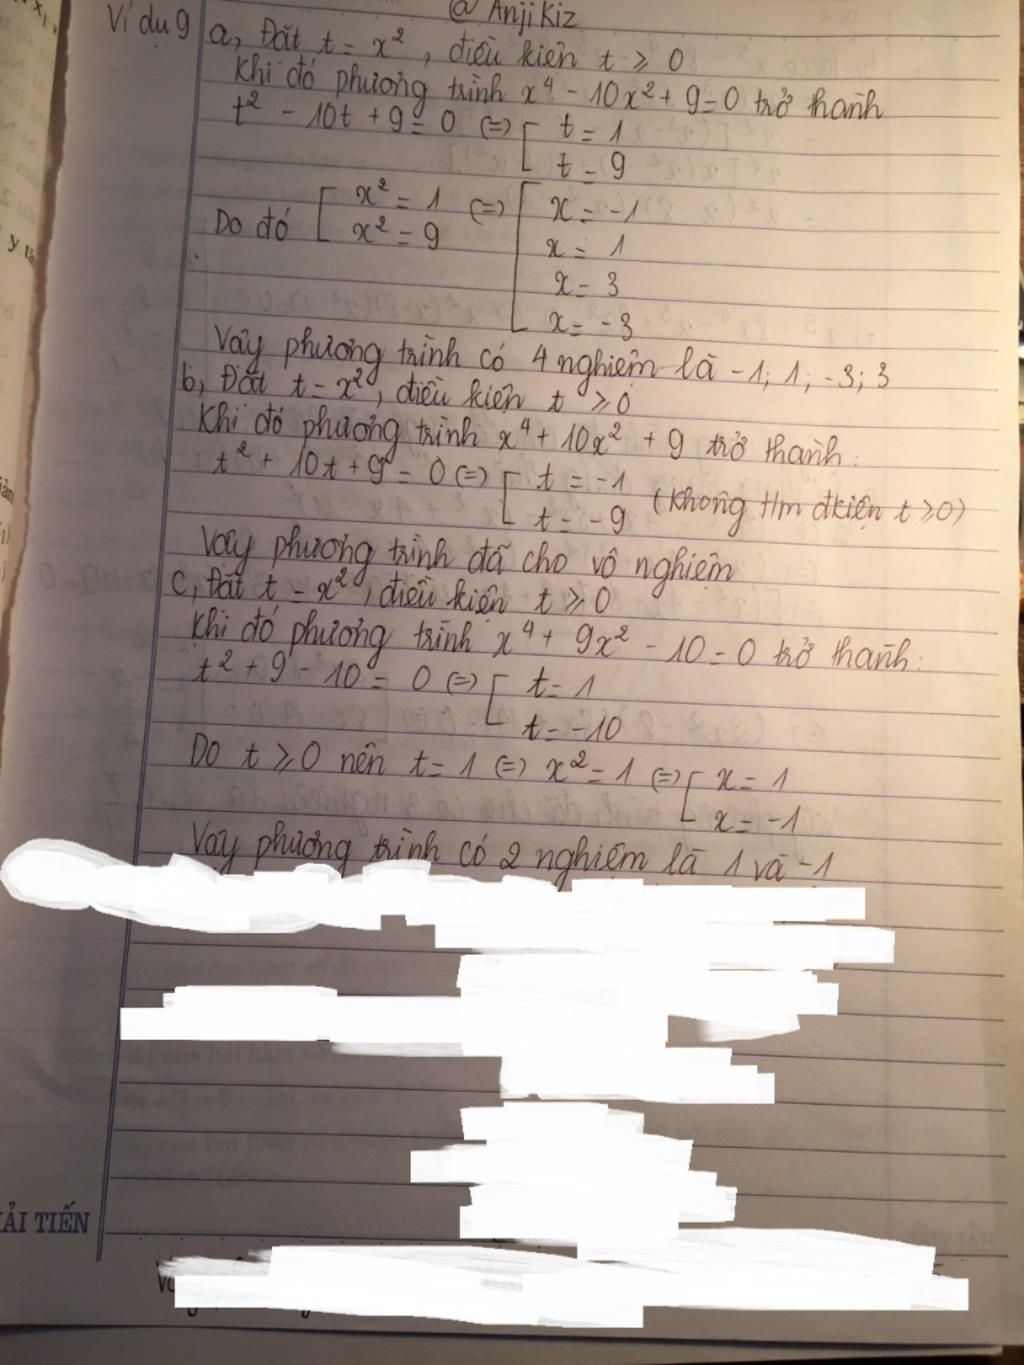 @ Anjikiz
Ví dụ 9 a, Đặt t = x², điều kiện t ≥ 0
Khi đó phương trình x⁴ - 10x² + 9 = 0 trở thành
t² - 10t + 9 = 0 (=) [ t = 1
t = 9
Do đó [ x² = 1 (=) [ x = -1
x² = 9
x = 1
x = 3
x = -3
Vậy phương trình có 4 nghiệm là -1; 1; -3; 3
b, Đặt t = x², điều kiện t ≥ 0
Khi đó phương trình x⁴ + 10x² + 9 trở thành:
t² + 10t + 9 = 0 (=) [ t = -1
t = -9 (không t/m đkiện t ≥ 0)
Vậy phương trình đã cho vô nghiệm
c, Đặt t = x², điều kiện t ≥ 0
Khi đó phương trình x⁴ + 9x² - 10 = 0 trở thành:
t² + 9 - 10 = 0 (=) [ t = 1
t = -10
Do t ≥ 0 nên t = 1 (=) x² = 1 (=) [ x = 1
x = -1
Vậy phương trình có 2 nghiệm là 1 và -1
ẢI TIẾN